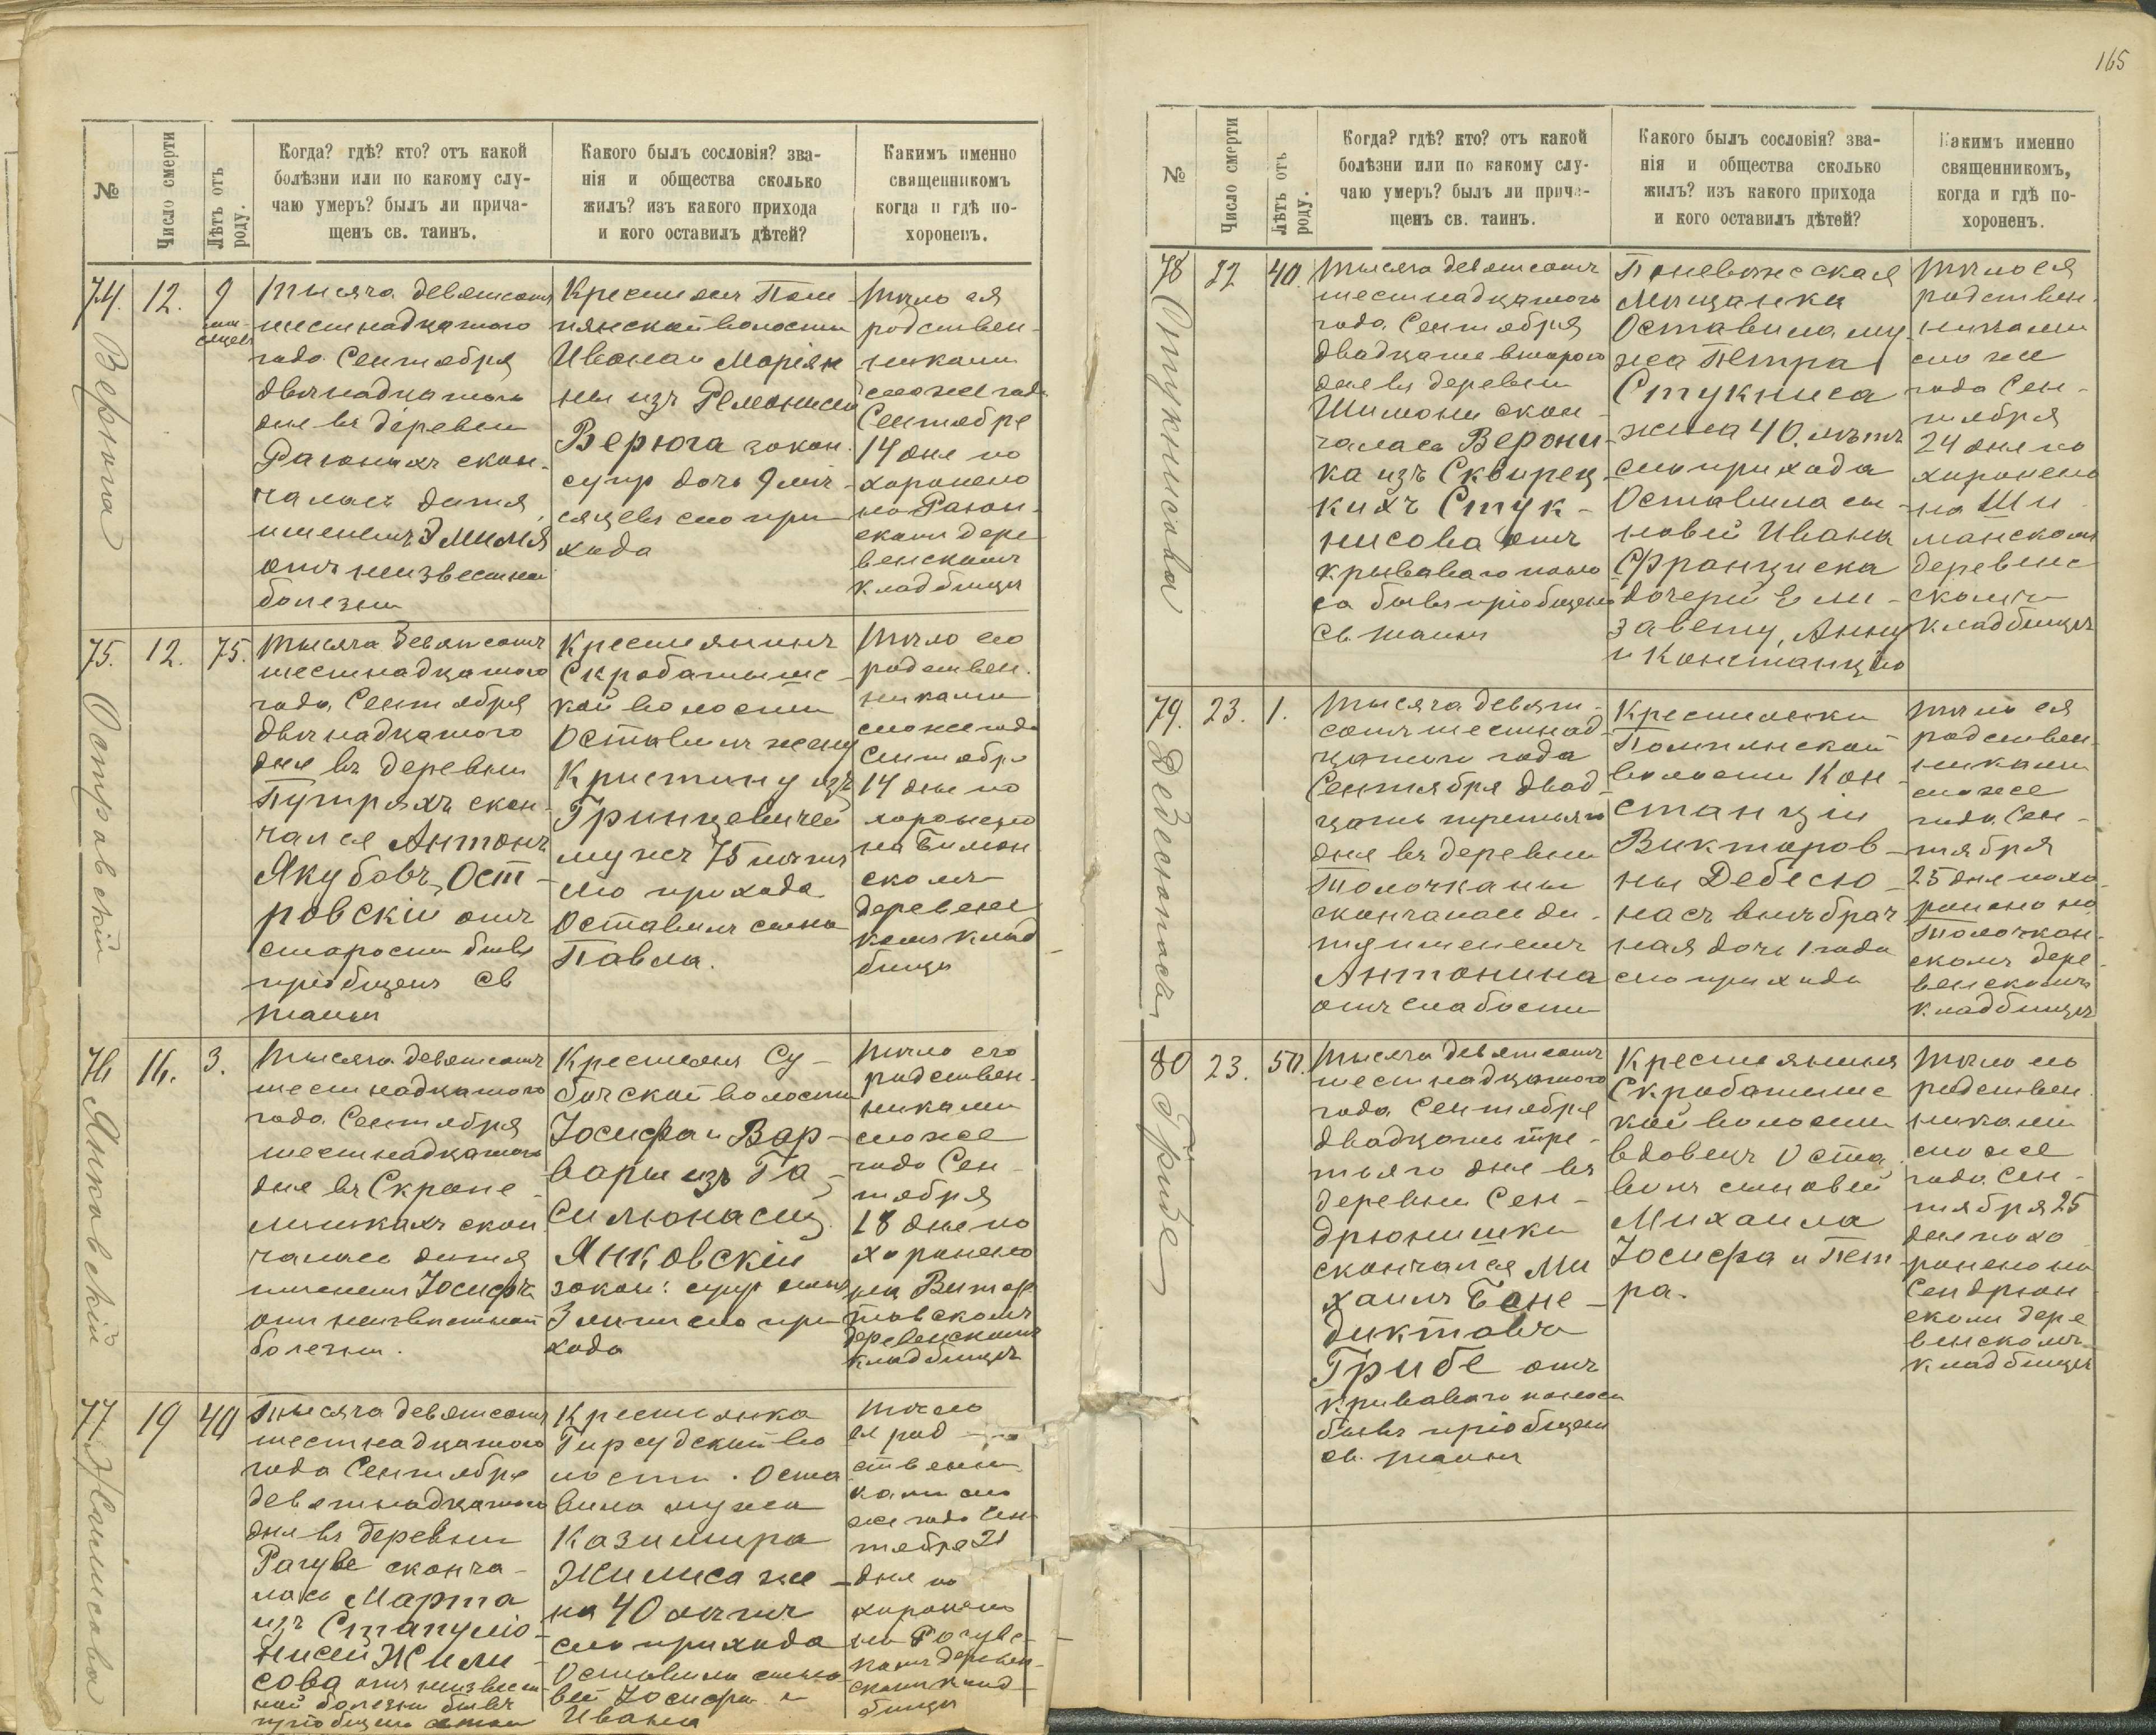 165
№
Число смерти
Лѣтъ отъ роду.
Когда? гдѣ? кто? отъ какой
болѣзни или по какому слу-
чаю умеръ? былъ ли прича-
щенъ св. таинъ.
Какого былъ сословія? зва-
нія и общества сколько
жилъ? изъ какого прихода
и кого оставилъ дѣтей?
Какимъ именно
священникомъ
когда и гдѣ по-
хороненъ.
74. 12. 9
мѣ-
сяцевъ
Верюга
Тысяча девятьсотъ
шестнадцатого
года Сентября
двѣнадцатого
дня въ деревни
Рагюнахъ скон-
чалась дитя
именемъ Эмилія
отъ неизвестной
болезни
Крестьянъ Пом-
пянской волости
Ивана и Маріян
ны изъ
Верюга закон.
супр дочь 9 мѣ-
сяцевъ сего при
хода
тѣло ея
родствен-
никами
сегоже года
Сентября
14 дня по
хоронено
на Рагюн-
скомъ дере
венскомъ
кладбищѣ
75. 12. 75.
Островскій
Тысяча девятьсотъ
шестнадцатого
года Сентября
двѣнадцатого
дня въ деревни
скон-
чался Антонъ
Якубовъ Ост-
ровскій отъ
старости бывъ
пріобщенъ Св
таинъ
Крестьянинъ
Скробатышс-
кой волости
Оставилъ жену
Кристину изъ
Гринцевичей
мужъ 75 лѣтъ
сего прихода
Оставилъ сына
Павла.
тѣло его
родствен-
никами
сегоже года
Сентября
14 дня по
хоронено
на
скомъ
деревенс
комъ клад
бищѣ
76 16. 3.
Янковскій
Тысяча девятьсотъ
шестнадцатого
года Сентября
шестнадцатого
дня въ Скрапе-
лишкахъ скон
чалась дитя
именемъ Іосифъ
отъ неизвѣстной
болезни.
Крестьянъ Су-
бочской волости
Іосифа и Вар-
вары изъ Га-
силюнасъ
Янковскій
закон: супр сынъ
3 лѣтъ сего при
хода
тѣло его
родствен-
никами
сегоже
года Сен-
тября
18 дня по
хоронено
на
товскомъ
деревенскомъ
кладбищѣ
77 19 40
Жилисова
Тысяча девятьсотъ
шестнадцатого
года Сентября
девятнадцатого
дня въ деревни
Рагуве сконча-
лась Марта
изъ Стапулio-
нисей Жили-
сова отъ неизвест-
ной болезни бывъ
пріобщена
Крестьянка
Гирсудской во
лости. Оста
вила мужа
Казимира
Жилиса же-
на 40 лѣтъ
сего прихода
Оставила сыно
вей Іосифа и
Ивана
тѣло
ея род
ственни
ками сего
же года Сен
тября 21
дня по
хоронено
на Рагувс-
комъ деревен-
скомъ клад
бищѣ
№
Число смерти
Лѣтъ отъ роду.
Когда? гдѣ? кто? отъ какой
болѣзни или по какому слу-
чаю умеръ? былъ ли приче-
щенъ св. таинъ.
Какого былъ сословія? зва-
нія и общества сколько
жилъ? изъ какого прихода
и кого оставилъ дѣтей?
Какимъ именно
священникомъ,
когда и гдѣ по-
хороненъ.
78 22 40.
Стукнисова
Тысяча девятьсотъ
шестнадцатого
года Сентября
двадцать второго
дня въ деревни
Шимони скон-
чалась Верони-
ка изъ Сквирец-
кихъ Стук-
нисова отъ
крываваго поно
са бывъ пріобщена
Св. таинъ
Поневѣжская
Мѣщанка
Оставила му-
жа Петра
Стукниса
жена 40. лѣтъ
сего прихода
Оставила сы-
новей Ивана
Франциска
дочерей Ели-
завету, Анну
и Констанцію
тѣло ея
родствен-
никами
сегоже
года Сен-
тября
24 дня по
хоронено
на Ши-
манскомъ
деревенс
комъ
кладбищѣ
79. 23. 1.
Дебесюнасъ
Тысяча девять-
сотъ шестнад-
цатого года
Сентября двад-
цать третьяго
дня въ деревни
Толочканы
скончалась ди-
тя именемъ
Антонина
отъ слабости
Крестьянки
Помпянской
волости Кон-
станціи
Викторов-
ны Дебесю-
насъ внѣбрач-
ная дочь 1 года
сего прихода
тѣло ея
родствен-
никами
сегоже
года Сен-
тября
25 дня похо-
ронено на
Толочкан-
скомъ дере-
венскомъ
кладбищѣ
80 23. 50.
Грибе
Тысяча девятьсотъ
шестнадцатого
года Сентября
двадцать тре-
тьяго дня въ
деревни Сен-
дрюнишки
скончался Ми
хаилъ Бене-
диктовъ
Грибе отъ
криваваго поноса
бывъ пріобщенъ
св. таинъ
Крестьянинъ
Скробатышс
кой волости
вдовецъ Оста
вилъ сыновей
Михаила
Іосифа и Пет
ра.
тѣло его
родствен
никами
сегоже
года Сен-
тября 25
дня похо
ронено на
Сендрюн-
скомъ дере
венскомъ
кладбищѣ